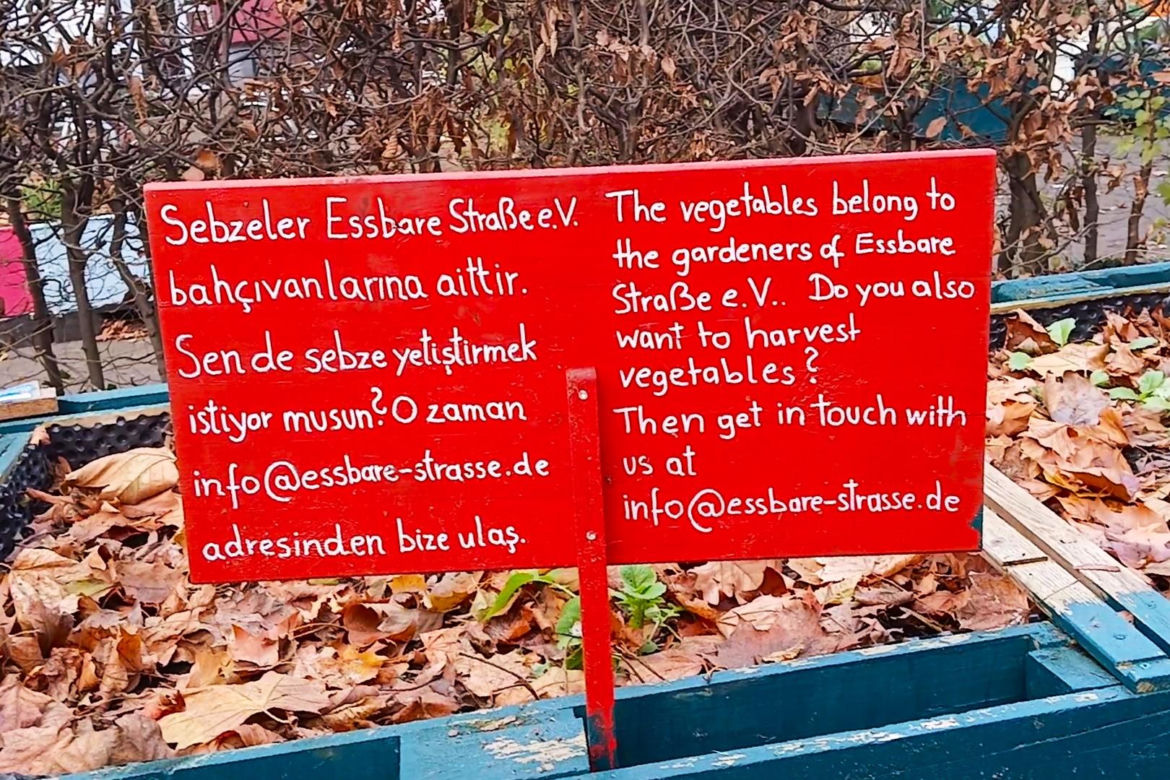 Sebzeler Essbare Straße e.V.
bahçıvanlarına aittir.
Sen de sebze yetiştirmek
istiyor musun? O zaman
info@essbare-strasse.de
adresinden bize ulaş.
The vegetables belong to
the gardeners of Essbare
Straße e.V.. Do you also
want to harvest
vegetables?
Then get in touch with
us at
info@essbare-strasse.de